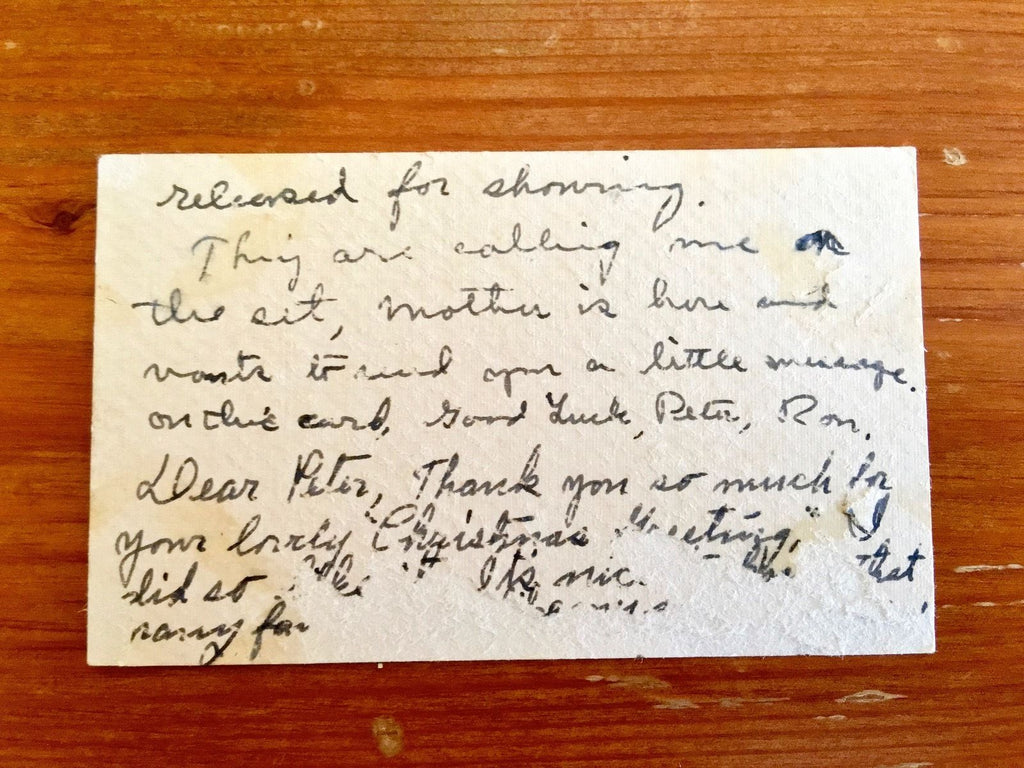 released for showing.
They are calling me on
the set, mother is here and
wants to send you a little message.
on this card, Good Luck, Peter, Ron.
Dear Peter, Thank you so much for
your lovely "Christmas Greeting," I
did so like it It's nic that
many fan